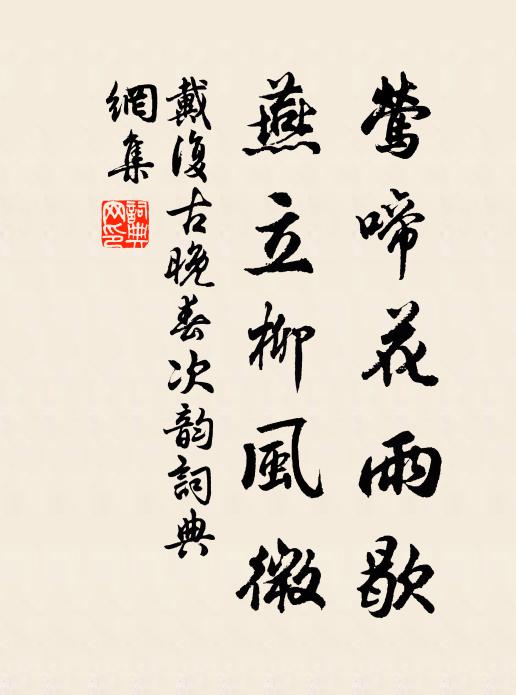 鶯啼花雨歇
燕立柳風微
戴復古晚春次韵詞典
網集
詞典
网印